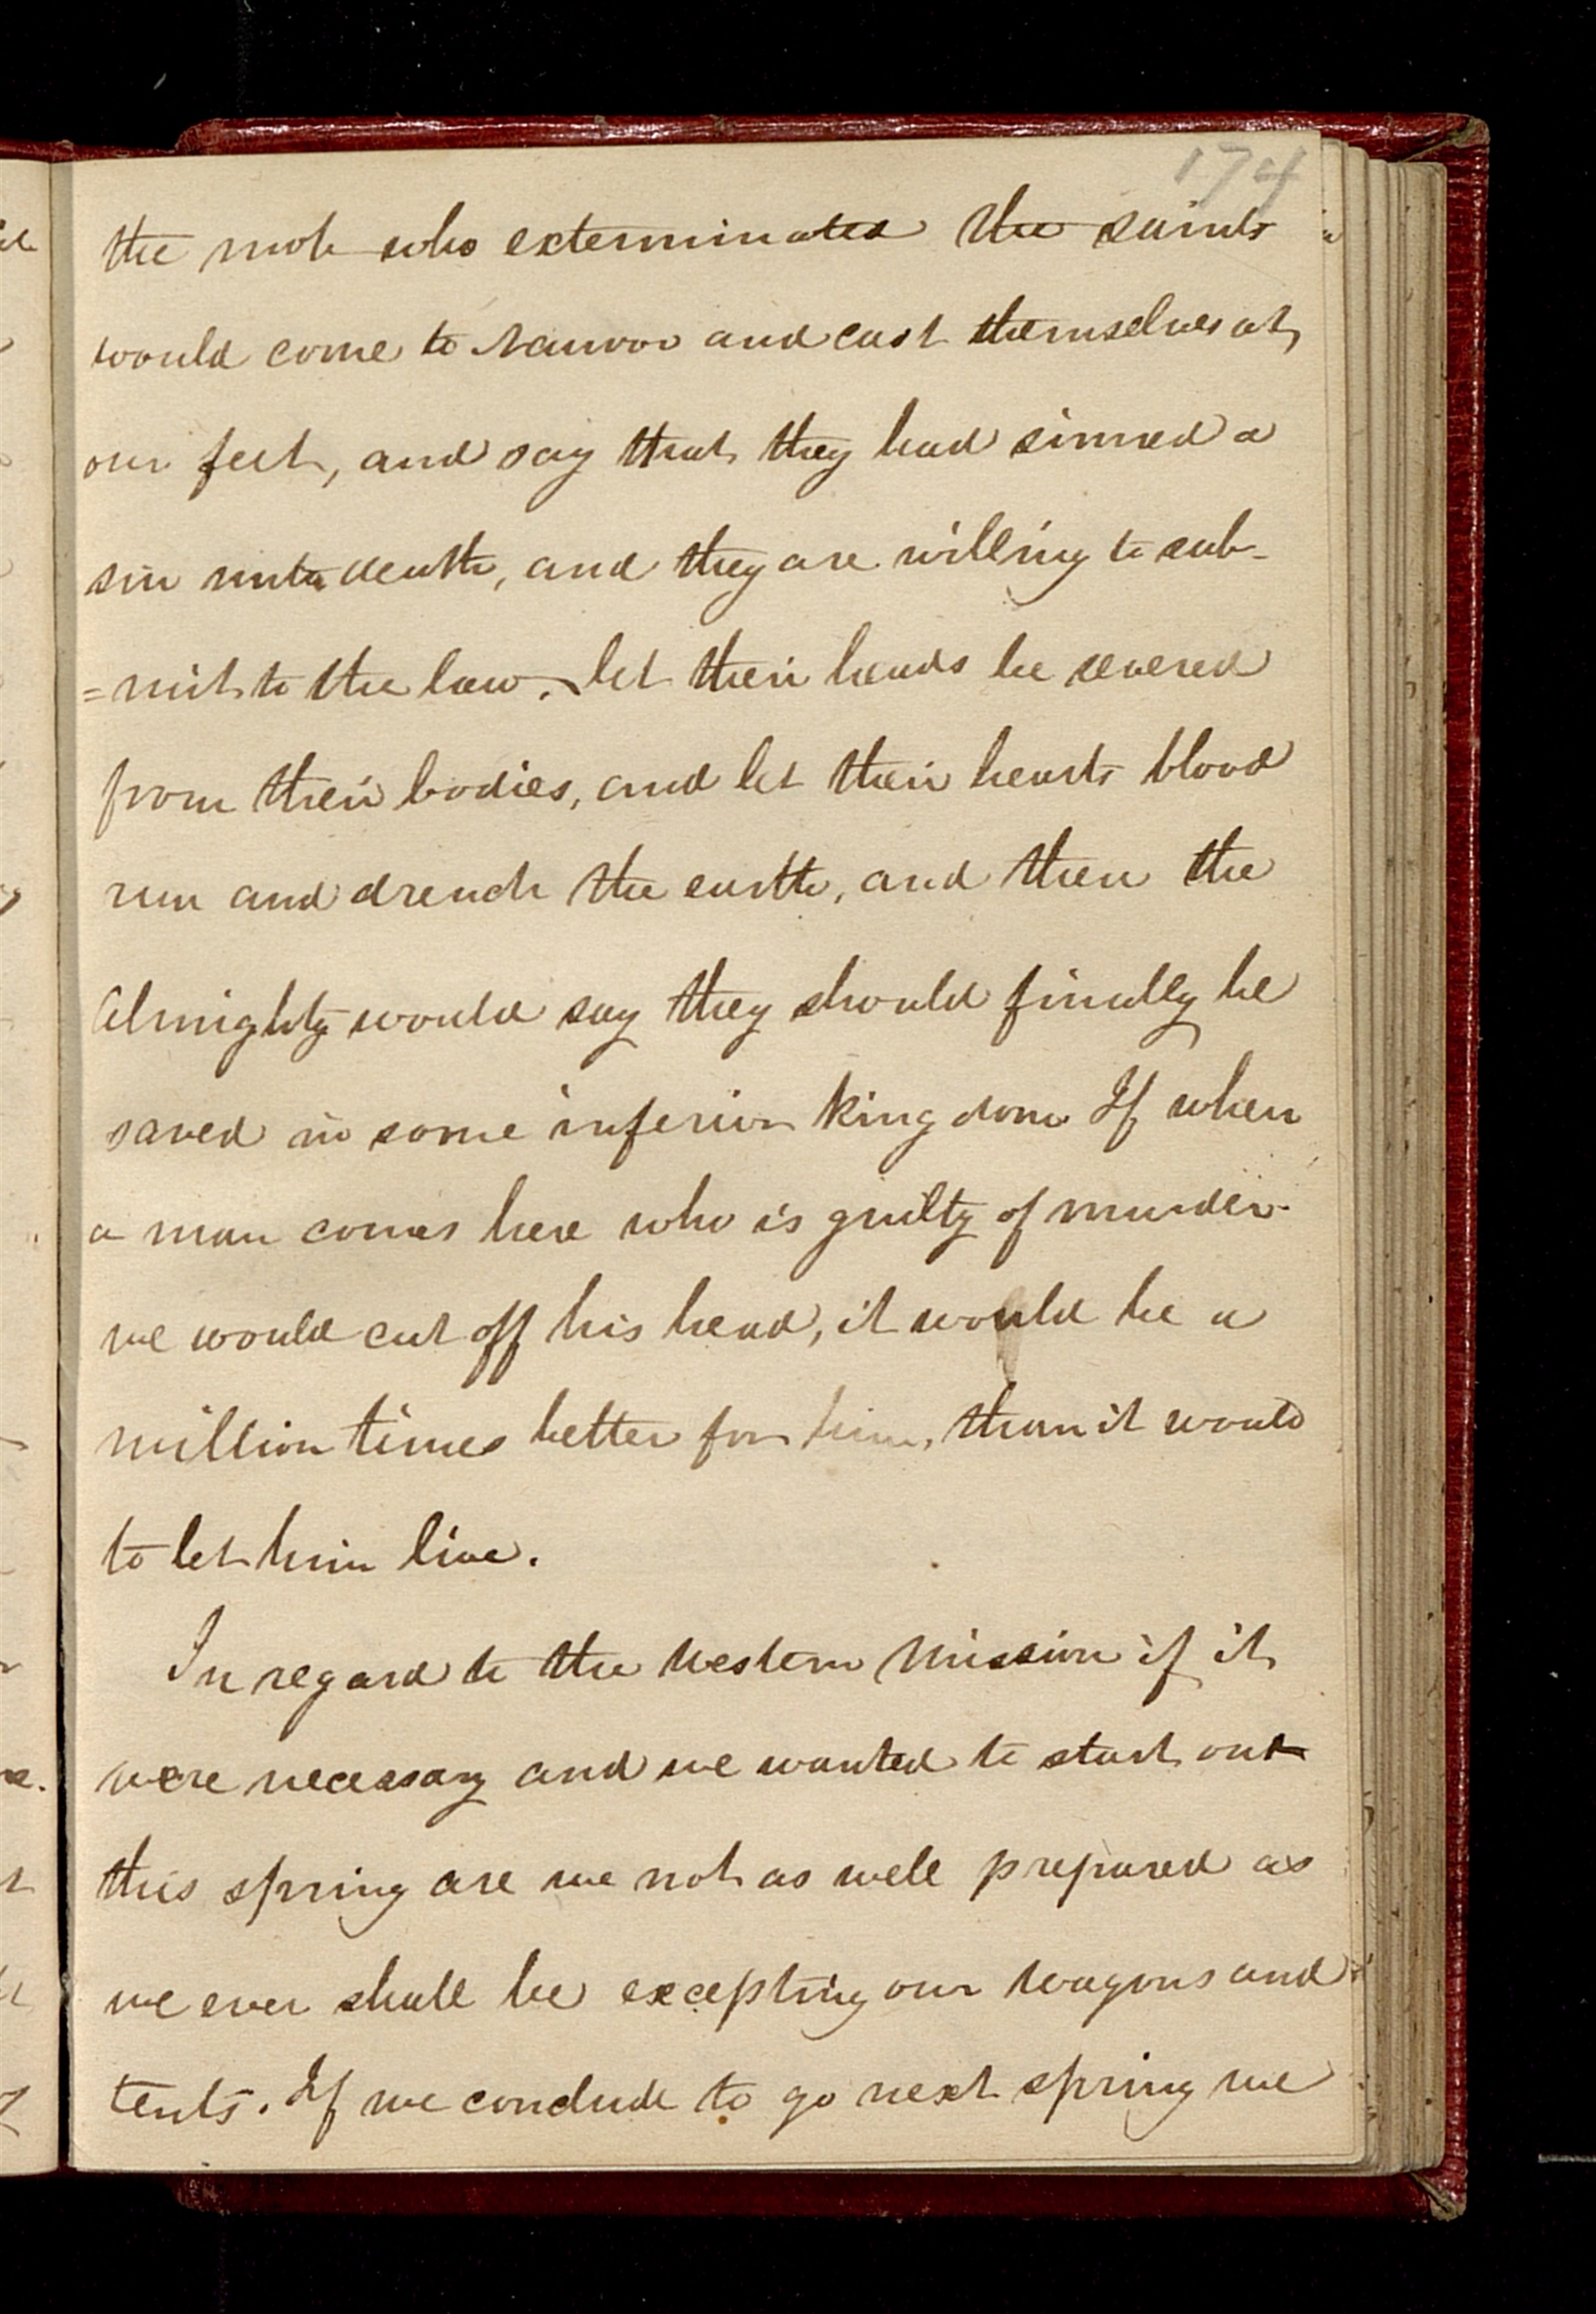 174
the mob who exterminated the saints
would come to Nauvoo and cast themselves at
our feet, and say that they had sinned a
sin unto death, and they are willing to sub-
=mit to the law. let their heads be severed
from their bodies, and let their hearts blood
run and drench the earth, and then the
Almighty would say they should finally be
saved in some inferior kingdom If when
a man comes here who is guilty of murder
we would cut off his head, it would be a
million times better for him, than it would
to let him live.
In regard to the Western Mission if it
were necessary and we wanted to start out
this spring are we not as well prepared as
we ever shall be excepting our wagons and
tents. If we conclude to go next spring we